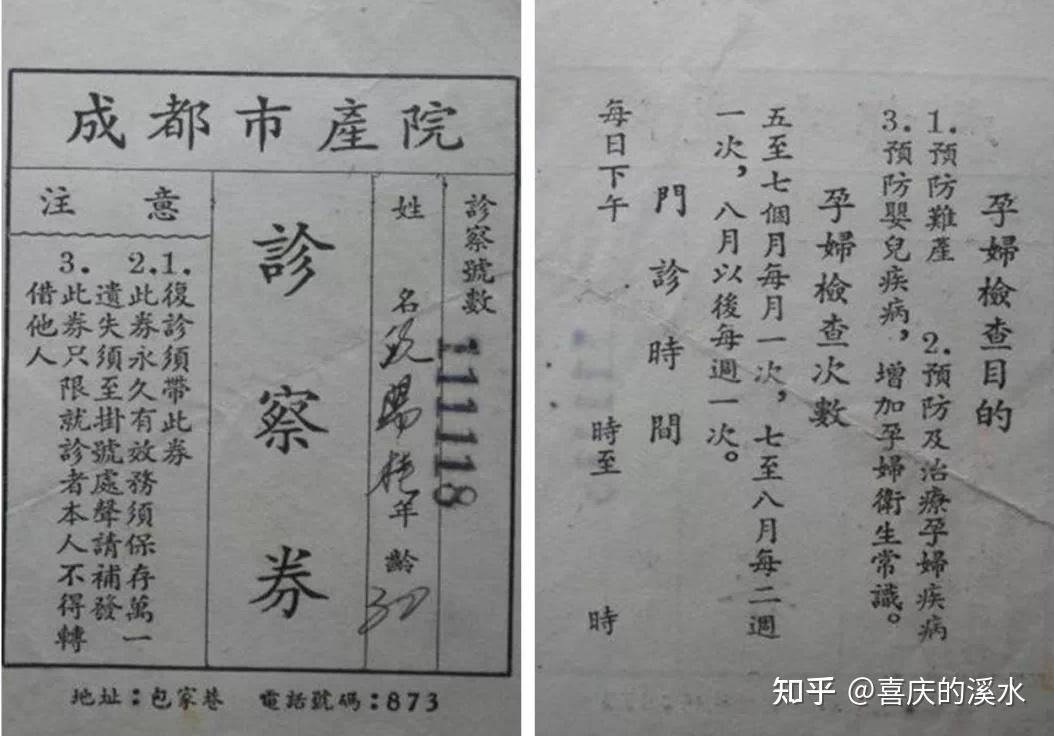 成都市產院
診察號數
11118
姓名
年齡
30
診察券
注意
1.復診須帶此券
2.此券永久有效務須保存萬一
遺失須至掛號處聲請補發
3.此券只限就診者本人不得轉
借他人
地址：包家巷 電話號碼：873
孕婦檢查目的
1.預防難產 2.預防及治療孕婦疾病
3.預防嬰兒疾病，增加孕婦衛生常識。
孕婦檢查次數
五至七個月每月一次，七至八月每二週
一次，八月以後每週一次。
門診時間
每日下午 時至 時
知乎 @喜庆的溪水